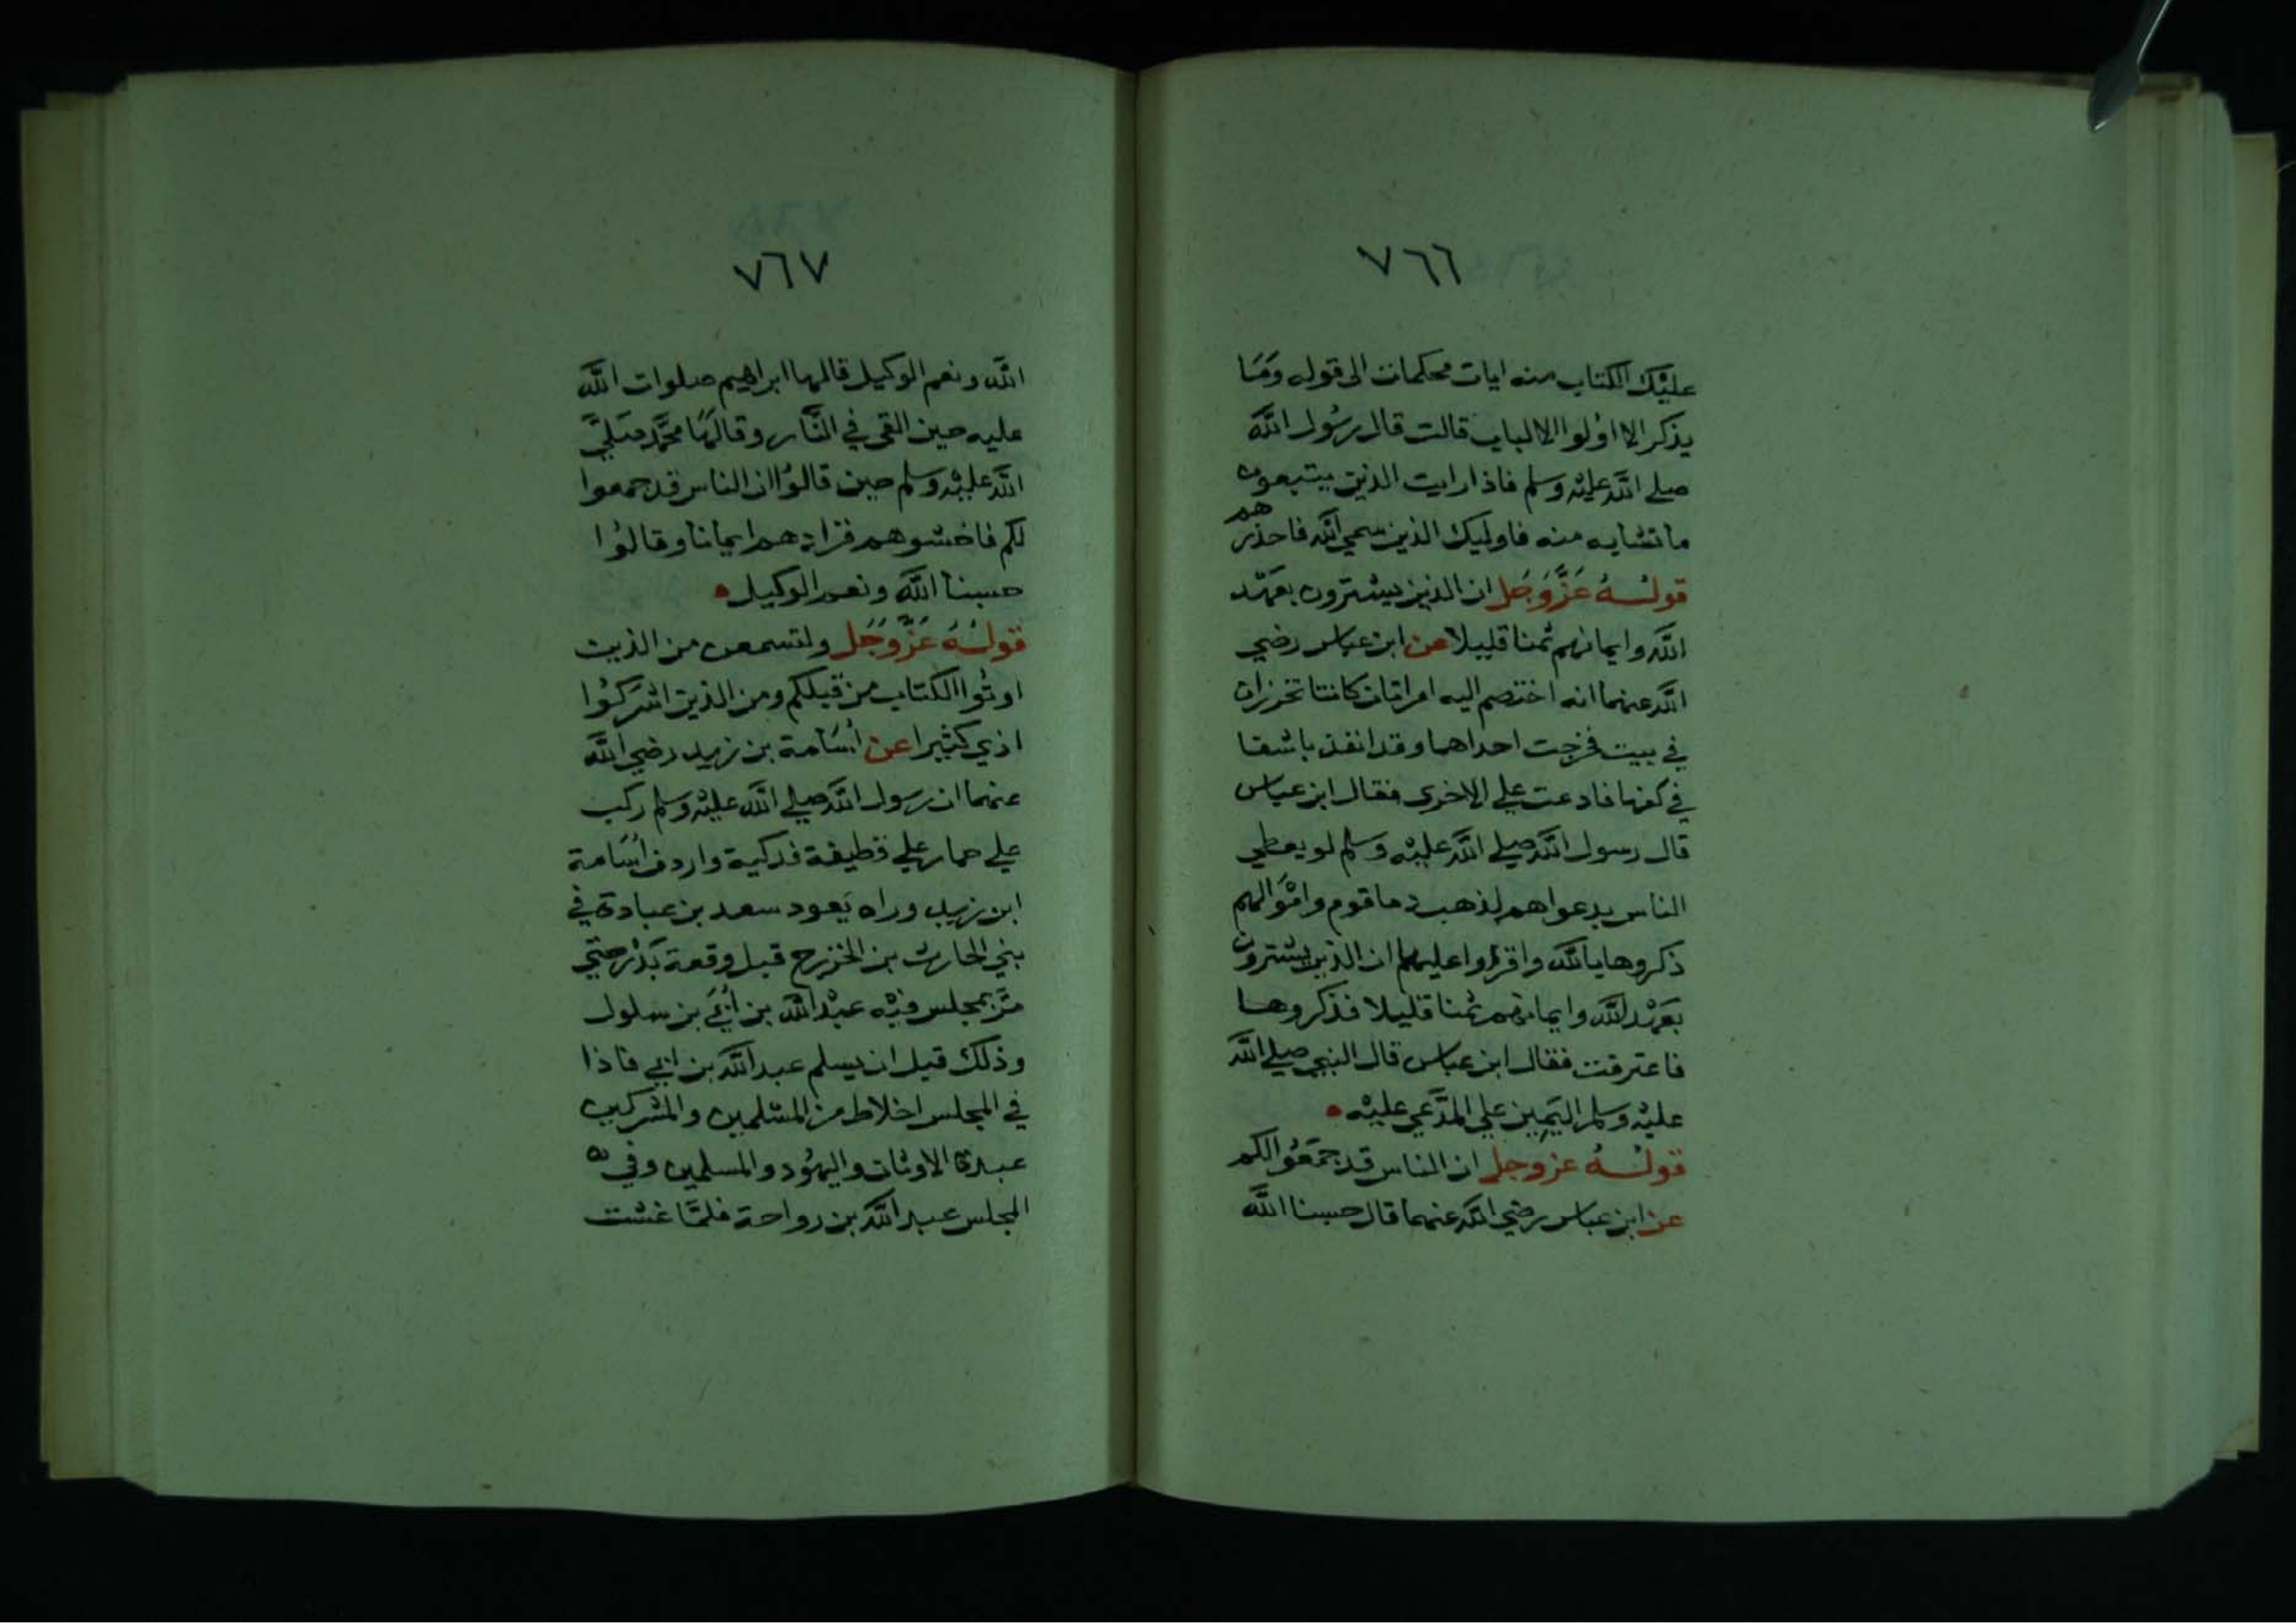 ٧٦٦
عليْك الكتاب منه ايات محكمات الى قوله ومَا
يذكر الا اوُلوا الالباب قالت قال رسُول اللَّه
صلى اللَّه عليْه وسلم فاذا رايت الذين يتبعون
ما تشابه منه فاوليك الذين سمي اللَّه فاحذرهم
قولهُ عَزَّوَجَل ان الذين يشترون بعَهْد
اللَّه وايمانهم ثمنا قليلا عن ابن عباس رضي
اللَّه عنهما انه اختصم اليه امراتان كانتا تخرزان
في بيت فخرجت احداهما وقد انفذ باشفا
في كفها فادعت على الاخرى فقال ابن عباس
قال رسول اللَّه صلى اللَّه عليْه وسلم لو يعطي
الناس بدعواهم لذهب دما قوم وامْوَالهم
ذكروها بالله واقرؤا عليها ان الذين يشترون
بعَهْد اللَّه وايمانهم ثمنا قليلا فذكروها
فاعترفت فقال ابن عباس قال النبي صلى اللَّه
عليْه وسلم اليَمِين على المدَّعي عليْه
قولهُ عزوجل ان الناس قد جمَعُوا لكم
عن ابن عباس رضي اللَّه عنهما قال حسبنا اللَّه
٧٦٧
اللَّه ونعم الوكيل قالها ابراهيم صلوات اللَّه
عليه حين القى في النَّار وقالهَا محمَّد صَلَّى
اللَّه عليْه وسلم حين قالوُا ان الناس قد جمعوا
لكم فاخشوهم فزادهم ايمانا وقالوُا
حسبنا اللَّه ونعم الوكيل
قولهُ عَزَّوَجَل ولتسمعن من الذين
اوتوُا الكتاب من قبلكم ومن الذين اشْرَكوُا
اذي كثيرا عن أسَامة بن زيد رضي اللَّه
عنهما ان رسول اللَّه صلى اللَّه عليْه وسلم ركب
على حمار على قطيفة فدكية واردف أسَامة
ابن زيد وراه يَعود سعد بن عبادة في
بني الحارث بن الخزرج قبل وقعة بَدْر حتي
مَرَّ بمجلس فيْه عبْد اللَّه بن أبَي بن سلول
وذلك قبل ان يسلم عبد اللَّه بن ابي فاذا
في المجلس اخلاط من المسْلمين والمشْركين
عبدة الاوثان واليهُود والمسلمين وفي
المجلس عبد اللَّه بن رواحة فلمَّا غشت